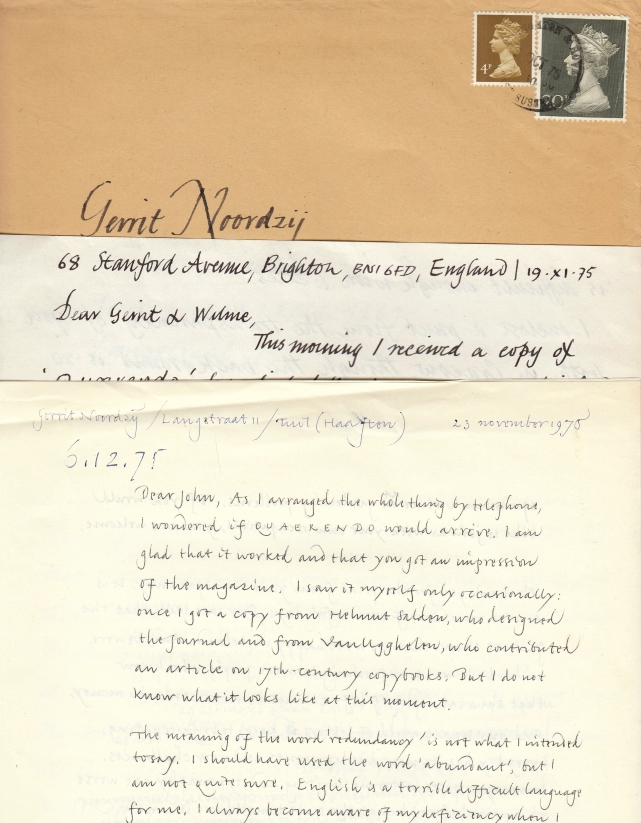 4P
20P
OCT 75
SUSSEX
Gerrit Noordzij
68 Stanford Avenue, Brighton, BN1 6FD, England | 19·XI·75
Dear Gerrit & Wilme,
This morning I received a copy of
Gerrit Noordzij / Langestraat 11 / Tuil (Haaften) 23 november 1975
6.12.75
Dear John, As I arranged the whole thing by telephone,
I wondered if QUAERENDO would arrive. I am
glad that it worked and that you got an impression
of the magazine. I saw it myself only occasionally:
once I got a copy from Helmut Salden, who designed
the Journal and from Van Uchelen, who contributed
an article on 17th-century copybooks. But I do not
know what it looks like at this moment.
The meaning of the word 'redundancy' is not what I intended
to say. I should have used the word 'abundant', but I
am not quite sure. English is a terrible difficult language
for me. I always become aware of my deficiency when I